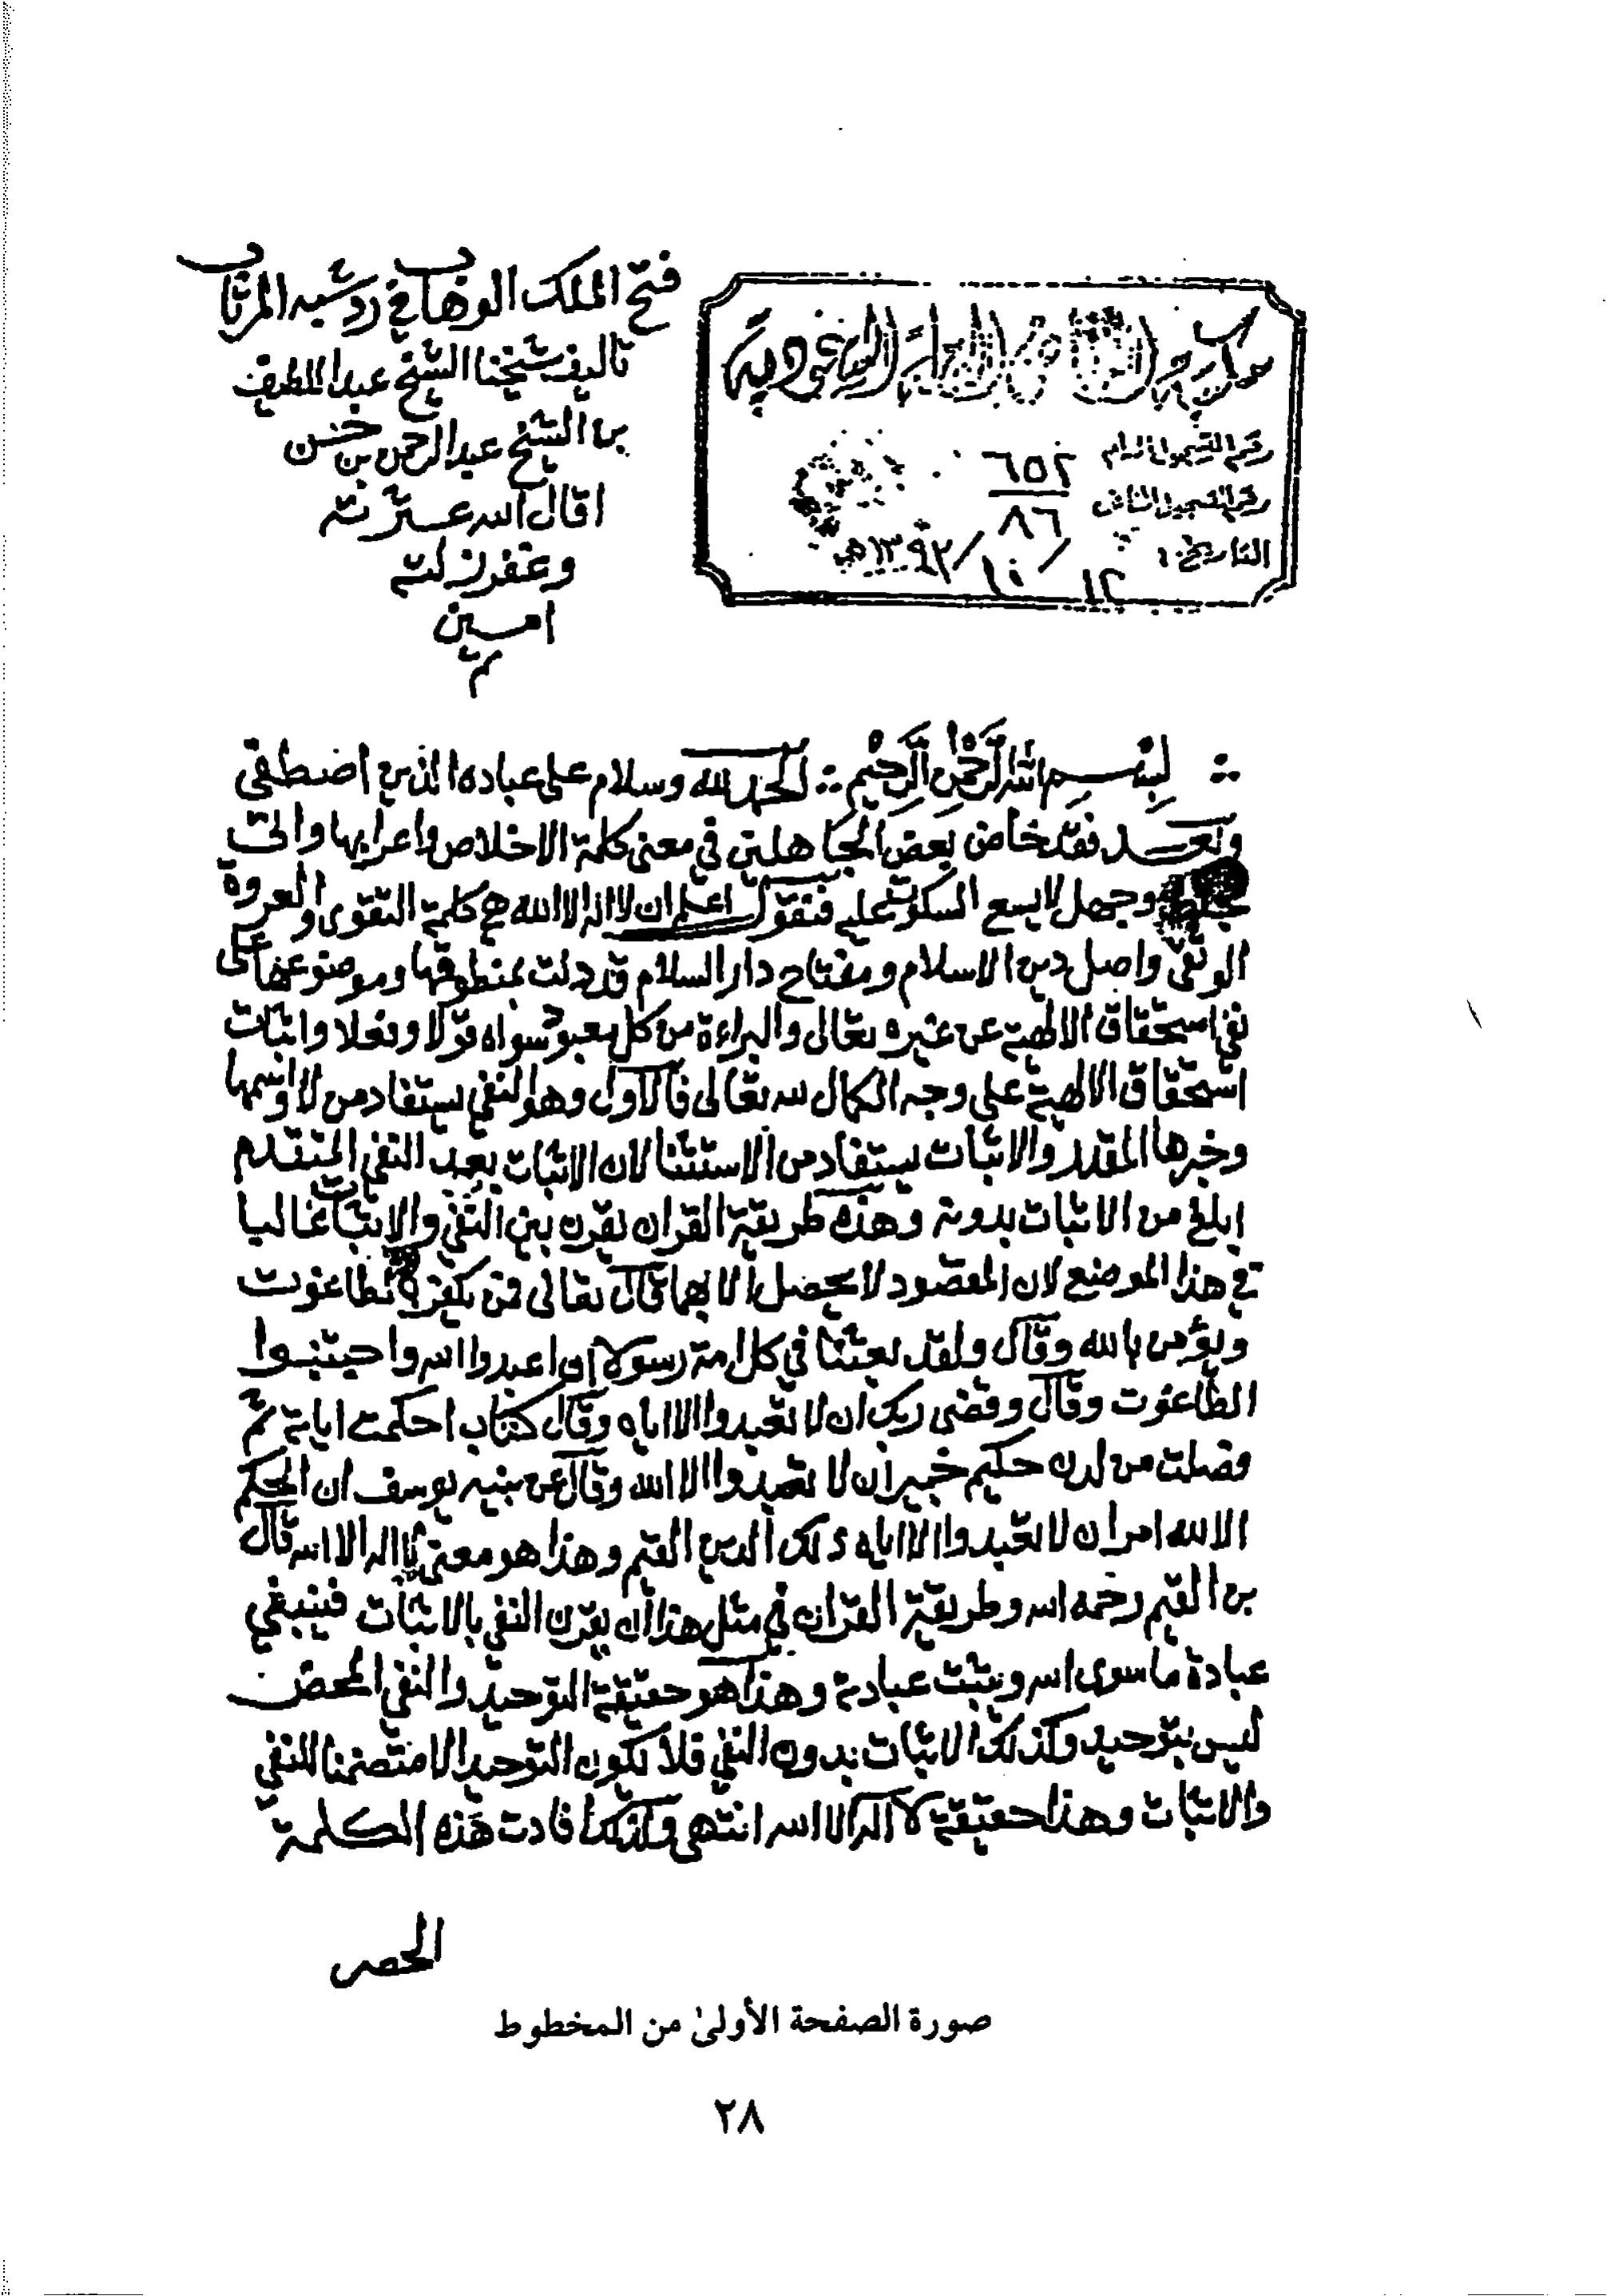 فتح الملك الوهاب في رد شبه المرتاب
تاليف شيخنا الشيخ عبد اللطيف
بن الشيخ عبد الرحمن بن حسن
اقال الله عثرته
وغفر زلته
امين
م
السعودية
رقم التسجيل العام ٦٥٢
رقم التسجيل الخاص ٨٦
التاريخ: ١٢/١٠/١٣٩٢هـ
بسم الله الرحمن الرحيم الحمد لله وسلام على عباده الذين اصطفى
وبعد فقد خاض بعض الجاهلين في معنى كلمة الاخلاص واعرابها واتى
بخلط وجهل لا يسع السكوت عليه فنقول اعلم ان لا اله الا الله هي كلمة التقوى والعروة
الوثقى واصل دين الاسلام ومفتاح دار السلام قد دلت بمنطوقها وموضوعها على
نفي استحقاق الالهية عن غيره تعالى والبراءة من كل معبود سواه قولا وفعلا واثبات
استحقاق الالهية على وجه الكمال لله تعالى فالاول وهو النفي يستفاد من لا واسمها
وخبرها المقدر والاثبات يستفاد من الاستثنا لان الاثبات بعد النفي المتقدم
ابلغ من الاثبات بدونه وهذه طريقة القران يقرن بين النفي والاثبات غالبا
في هذا الموضع لان المقصود لا يحصل الا بهما قال تعالى فمن يكفر بالطاغوت
ويؤمن بالله وقال ولقد بعثنا في كل امة رسولا ان اعبدوا الله واجتنبوا
الطاغوت وقال وقضى ربك ان لا تعبدوا الا اياه وقال كتاب احكمت اياته ثم
فصلت من لدن حكيم خبير ان لا تعبدوا الا الله وقال عن نبيه يوسف ان الحكم
الا لله امر ان لا تعبدوا الا اياه ذلك الدين القيم وهذا هو معنى لا اله الا الله قال
بن القيم رحمه الله وطريقة القران في مثل هذا ان يقرن النفي بالاثبات فينبغي
عبادة ما سوى الله ويثبت عبادته وهذا هو حقيقة التوحيد والنفي المحض
ليس بتوحيد وكذلك الاثبات بدون النفي فلا يكون التوحيد الا متضمنا للنفي
والاثبات وهذا حقيقة لا اله الا الله انتهى وافادت هذه الكلمة
الحصر
صورة الصفحة الأولىٰ من المخطوط
٢٨